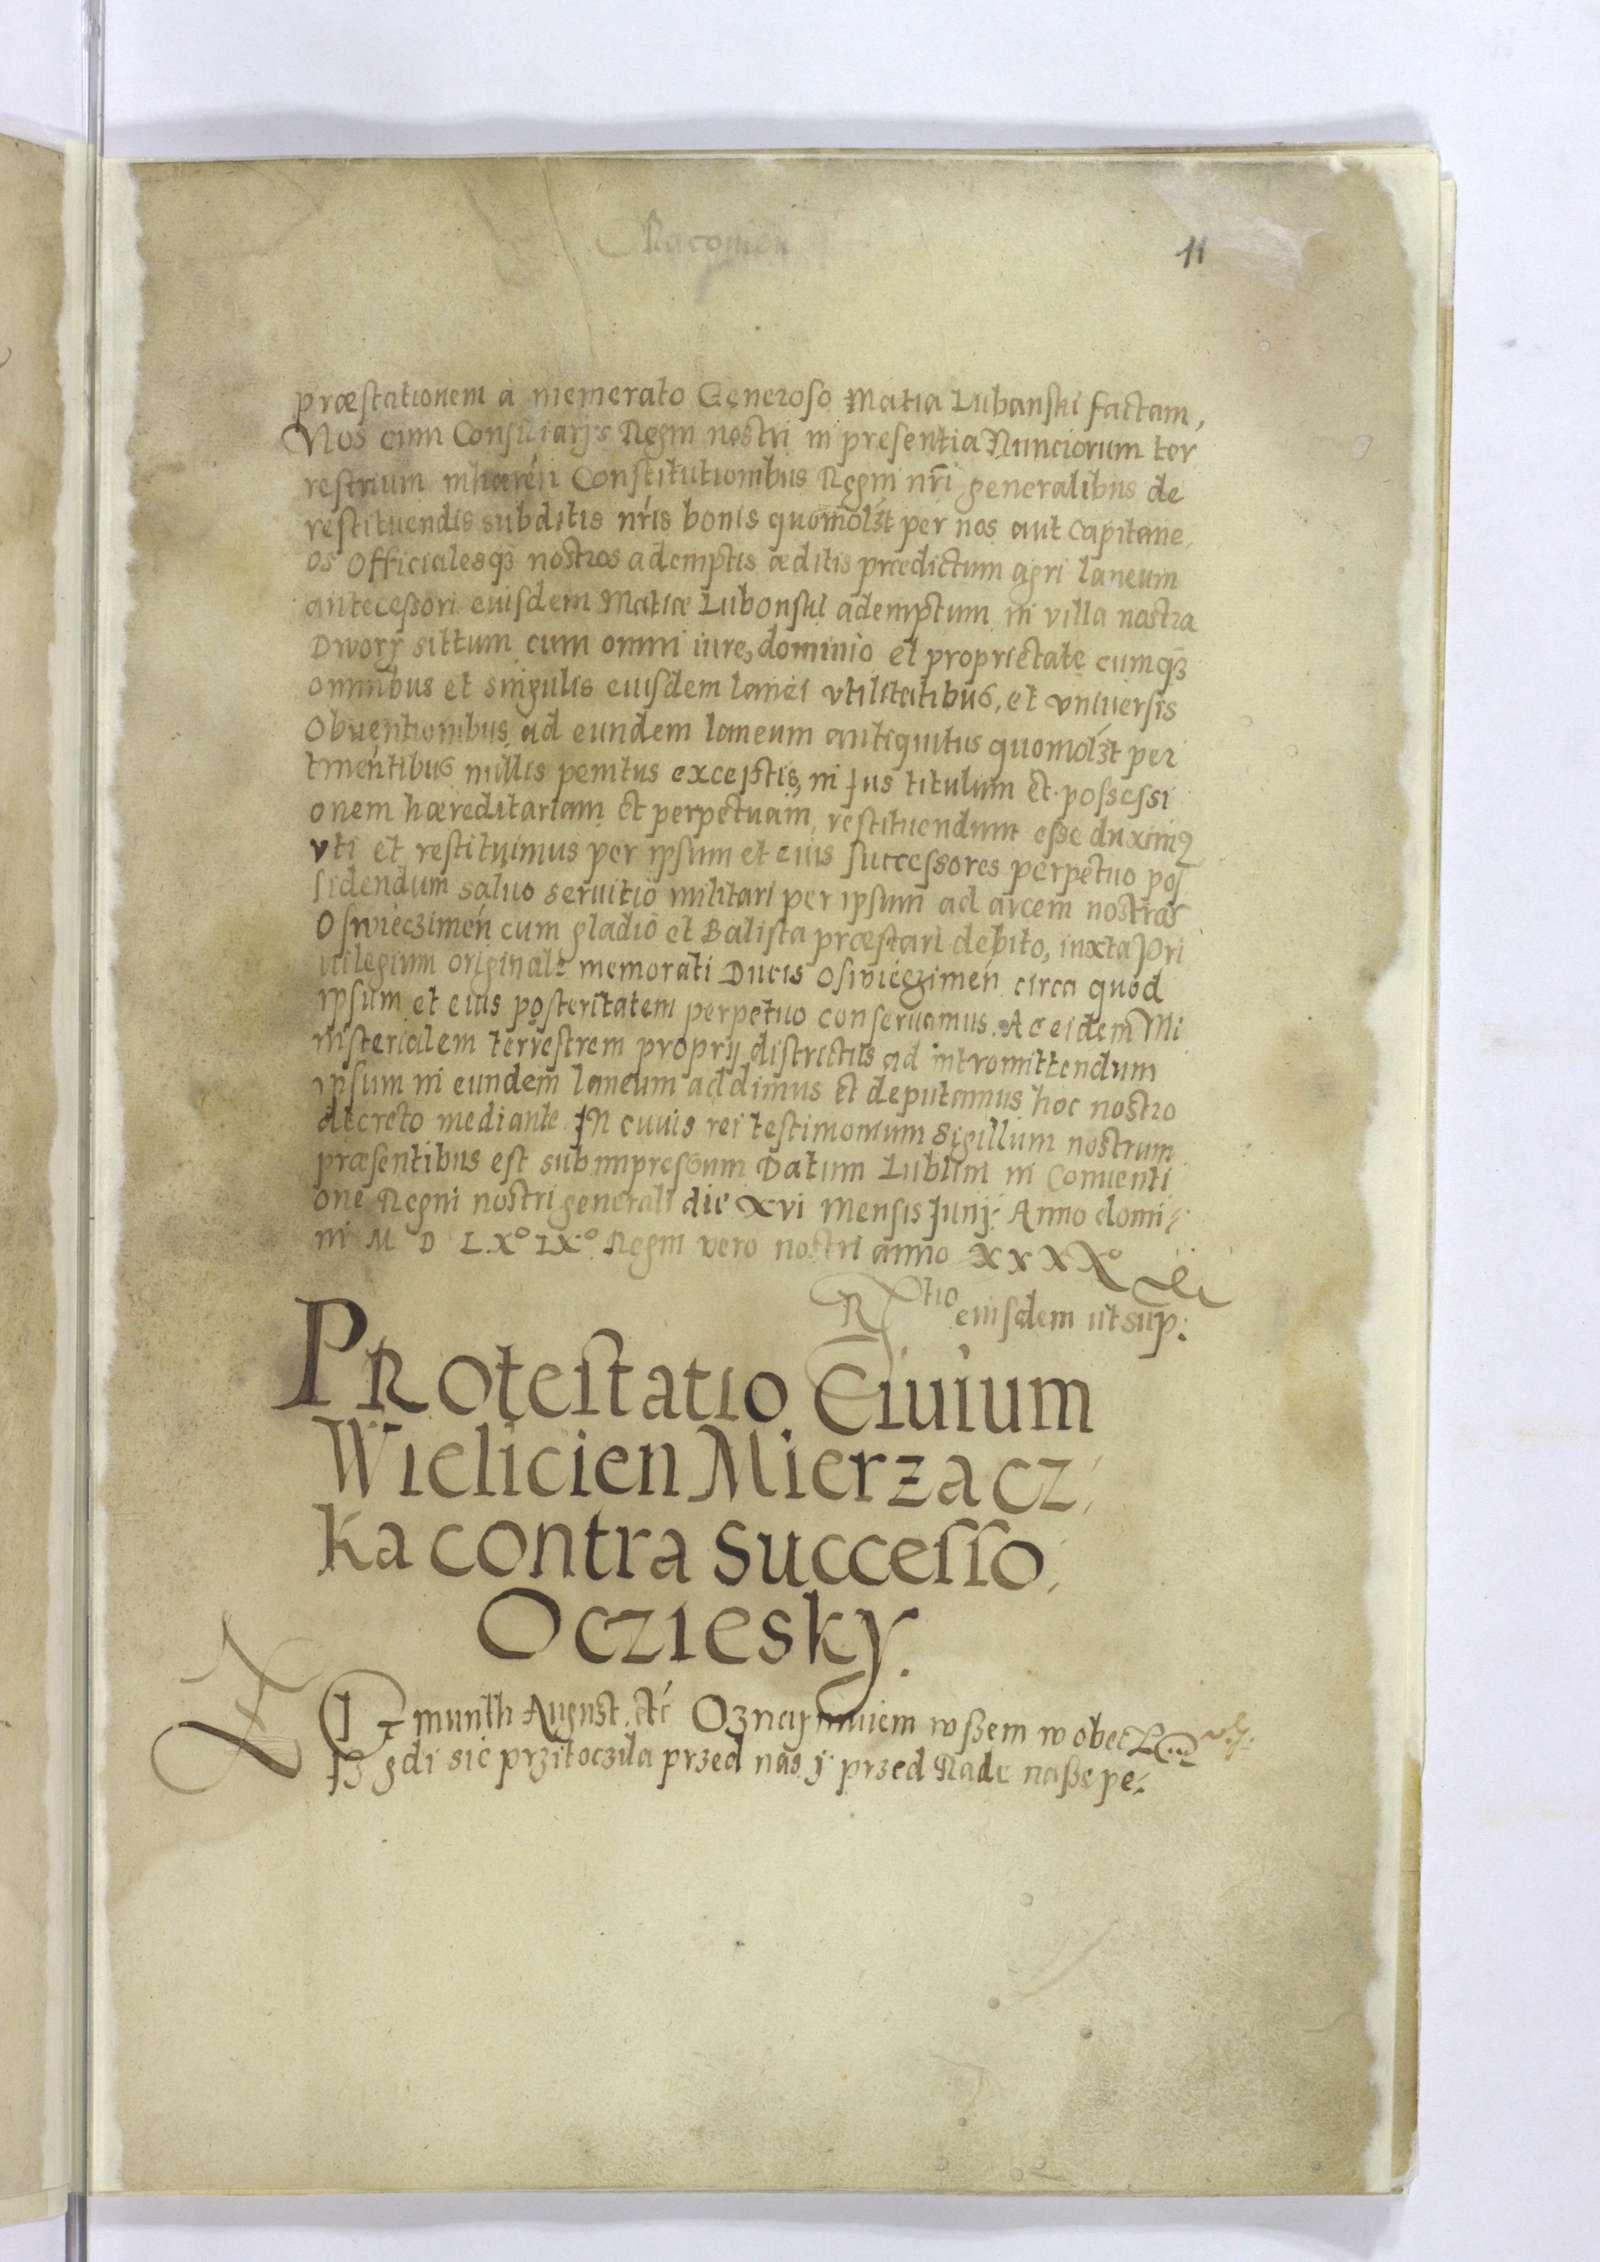 11
præstationem a memerato Generoso Matia Lubanski factam,
Nos cum Consiliarijs Regni nostri in presentia Nunciorum ter
restrium inhæreń Constitutionibus Regni nr̄i generalibus de
restituendis subditis nr̄is bonis quomolʒt per nos aut Capitane
os Officialesqʒ nostros ademptis æditis prædictum agri laneum
antecessori eiusdem Matiæ Lubonski ademptum in villa nostra
Dwory sittum cum omni iure, dominio et proprietate cumqʒ
omnibus et singulis eiusdem lanei vtilitatibus, et vniuersis
Obuentionibus ad eundem laneum antiquitus quomolʒt per
tineńtibus nullis penitus exceptis, in Jus titulum et possessi
onem hæreditariam et perpetuam, restituendum esse duximꝰ
vti et restituimus per ipsum et eius successores perpetuo pos
sidendum saluo seruitio militari per ipsum ad arcem nostras
Oswieczimeń cum gladio et Balista præstari debito, iuxta Pri
uilegium originale memorati Ducis Oswieczimeń circa quod
ipsum et eius posteritatem perpetuo conseruamus. Ac eidem Mi
nisterialem terrestrem proprij districtus ad intromittendum
ipsum in eundem laneum addimus et deputamus hoc nostro
decreto mediante. In cuuis rei testimonium Sigillum nostrum
præsentibus est subimpressum Datum Lublini in Conuenti
one Regni nostri generali die xvi Mensis Junij Anno domi
ni M D L.Xº IXº Regni vero nostri anno XXXXº
Rtio eiusdem ut sup:
PRotestatio Ciuium
Wielicien Mierzacz,
ka contra successo,
Ocziesky.
ZIGmunth August. etć Oznaymuiem wszem wobec
Jż gdi sie przitoczila przed nas y przed Rade nasze pe: